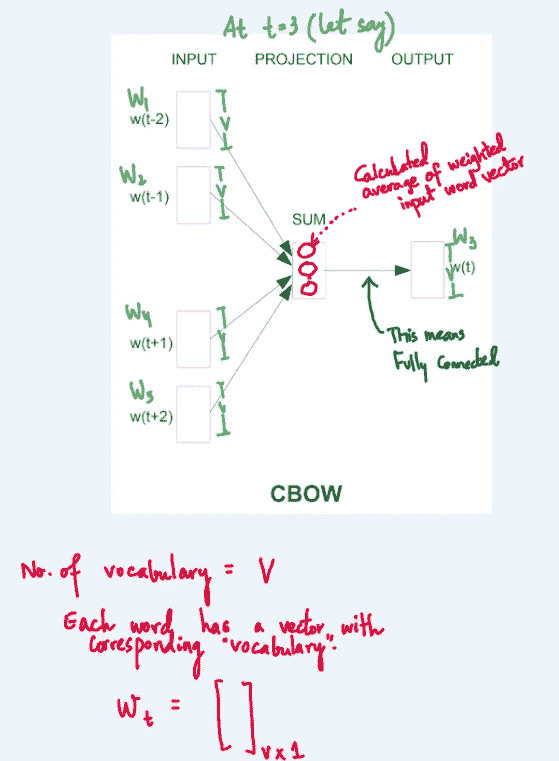 At t=3 (let say)
INPUT PROJECTION OUTPUT
W1
w(t-2)
V
W2
w(t-1)
V
Calculated
average of weighted
input word vector
SUM
W3
w(t)
V
W4
w(t+1)
V
This means
Fully Connected
W5
w(t+2)
V
CBOW
No. of vocabulary = V
Each word has a vector with
corresponding "vocabulary".
Wt = [ ] v x 1